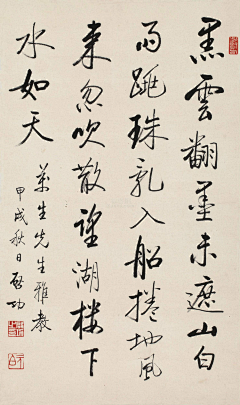 黑雲翻墨未遮山白
雨跳珠乱入船捲地風
來忽吹散望湖樓下
水如天
生先生雅教
甲戌秋日 啟功